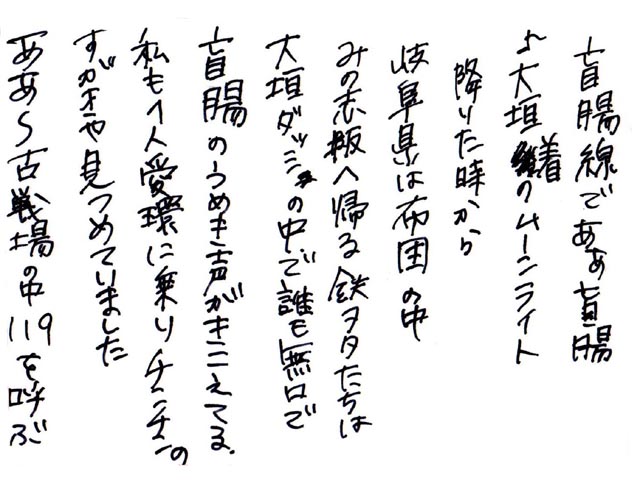 盲腸線でああ盲腸
♪大垣着のムーンライト
降りた時から
岐阜県は布団の中
みの赤坂へ帰る鉄ヲタたちは
大垣ダッシュの中で誰も無口で
盲腸のうめき声がきこえてる
私も1人愛環に乗りチンチンの
すがきや見つめていました
ああ〜古戦場の中119を呼ぶ